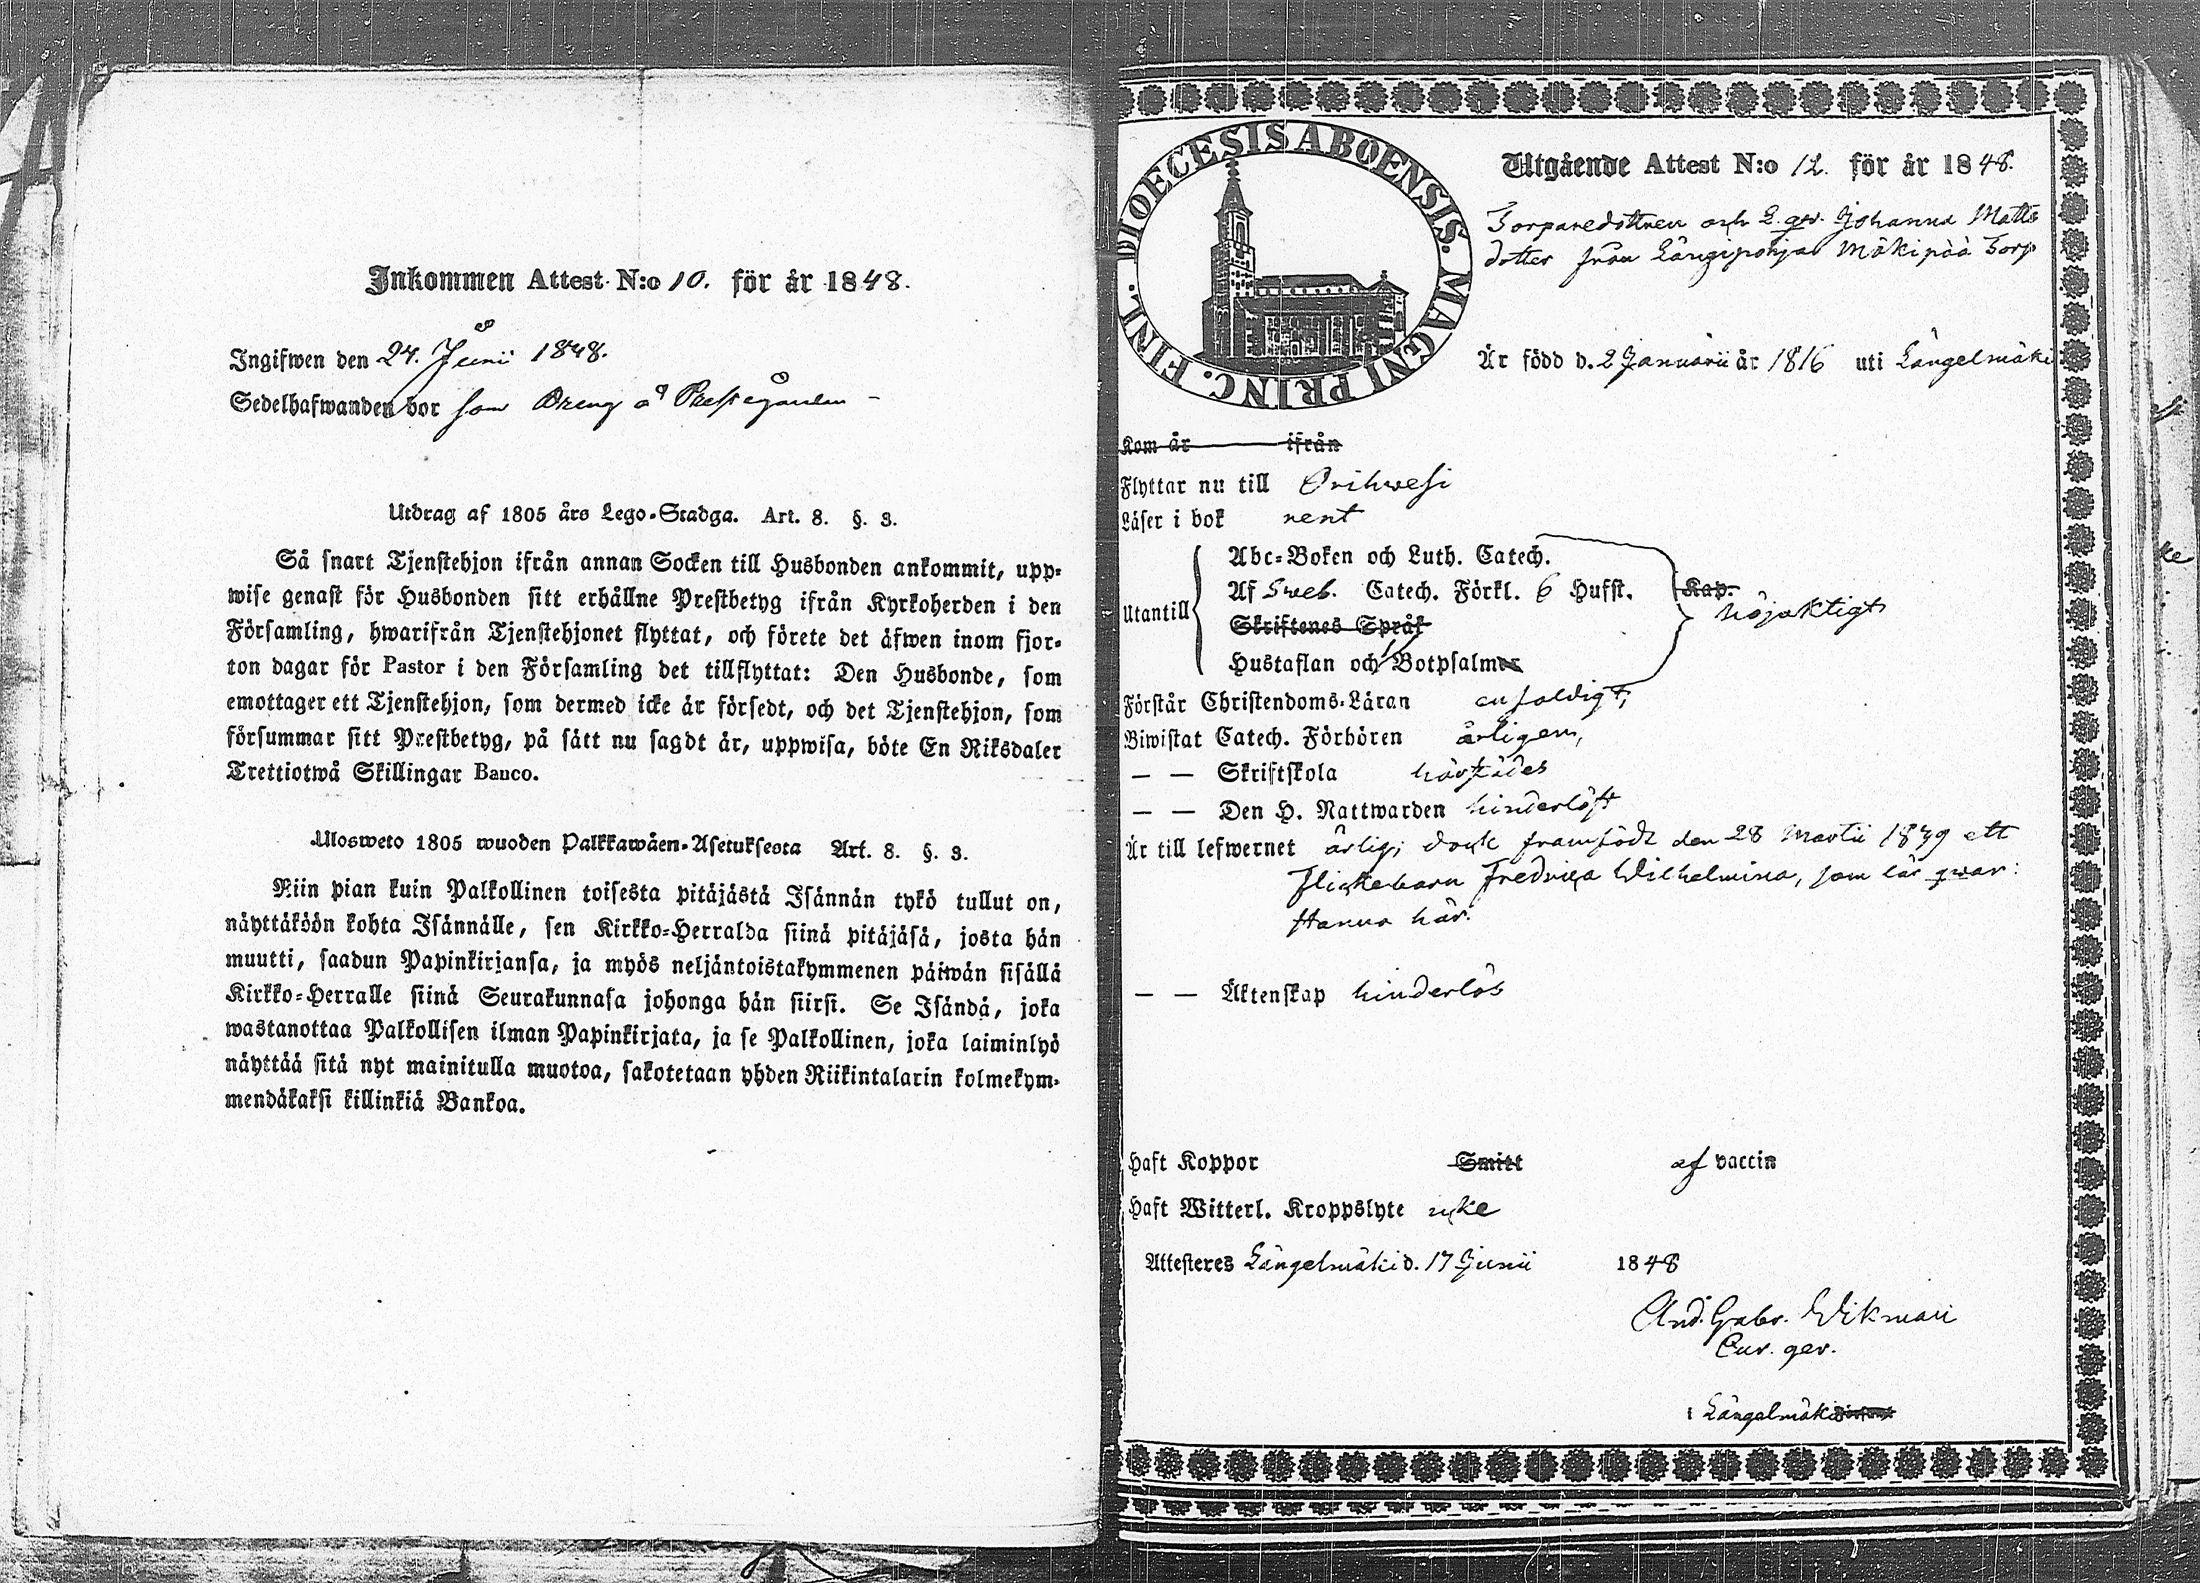 Inkommen Attest N:o 10. för år 1848.
Ingifwen den 24. Junii 1848.
Sedelhafwanden bor som Dreng å Prestgården –
Utdrag af 1805 års Lego-Stadga. Art. 8. §. 3.
Så snart Tjenstehjon ifrån annan Socken till Husbonden ankommit, upp-
wise genast för Husbonden sitt erhållne Prestbetyg ifrån Kyrkoherden i den
Församling, hwarifrån Tjenstehjonet flyttat, och förete det äfwen inom fjor-
ton dagar för Pastor i den Församling det tillflyttat: Den Husbonde, som
emottager ett Tjenstehjon, som dermed icke är försedt, och det Tjenstehjon, som
försummar sitt Prestbetyg, på sätt nu sagdt är, uppwisa, böte En Riksdaler
Trettiotwå Skillingar Banco.
Ulosweto 1805 wuoden Palkkawäen-Asetuksesta Art. 8. §. 3.
Niin pian kuin Palkollinen toisesta pitäjästä Isännän tykö tullut on,
näyttäköön kohta Isännälle, sen Kirkko-Herralda siinä pitäjäsä, josta hän
muutti, saadun Papinkirjansa, ja myös neljäntoistakymmenen päiwän sisällä
Kirkko-Herralle siinä Seurakunnasa johonga hän siirsi. Se Isändä, joka
wastanottaa Palkollisen ilman Papinkirjata, ja se Palkollinen, joka laiminlyö
näyttää sitä nyt mainitulla muotoa, sakotetaan yhden Riikintalarin kolmekym-
mendäkaksi killinkiä Bankoa.
DIOECESIS ABOENSIS. MAGNI PRINC. FINL.
Utgående Attest N:o 12. för år 1848.
Torparedottren och Q.ps. Johanna Matts
dotter från Längipohja Mäkipää Torp
Är född d. 2 Januarii år 1816 uti Längelmäki
Kom år ifrån
Flyttar nu till Orihwesi
Läser i bok rent
Abc-Boken och Luth. Catech.
Af Sweb. Catech. Förkl. 6 Hufst. Kap.
Utantill höjaktigt
Skriftenes Språk
Hustaflan och 1 Botpsalmer
Förstår Christendoms-Läran enfaldigt,
Biwistat Catech. Förhören årligen,
— — Skriftskola härstädes
— — Den H. Nattwarden hinderlöst
Är till lefwernet ärlig; dock framfödt den 28 Martii 1839 ett
flickebarn Fredrica Wilhelmina, som lär qwar:
stanna här.
— — Äktenskap hinderlös
Haft Koppor Smitt af vaccin
Haft Witterl. Kroppslyte icke
Attesteres Längelmäki d. 17 Junii 1848
And. Gabr. Wikman
Cur. ger.
i Längelmäki Församl.